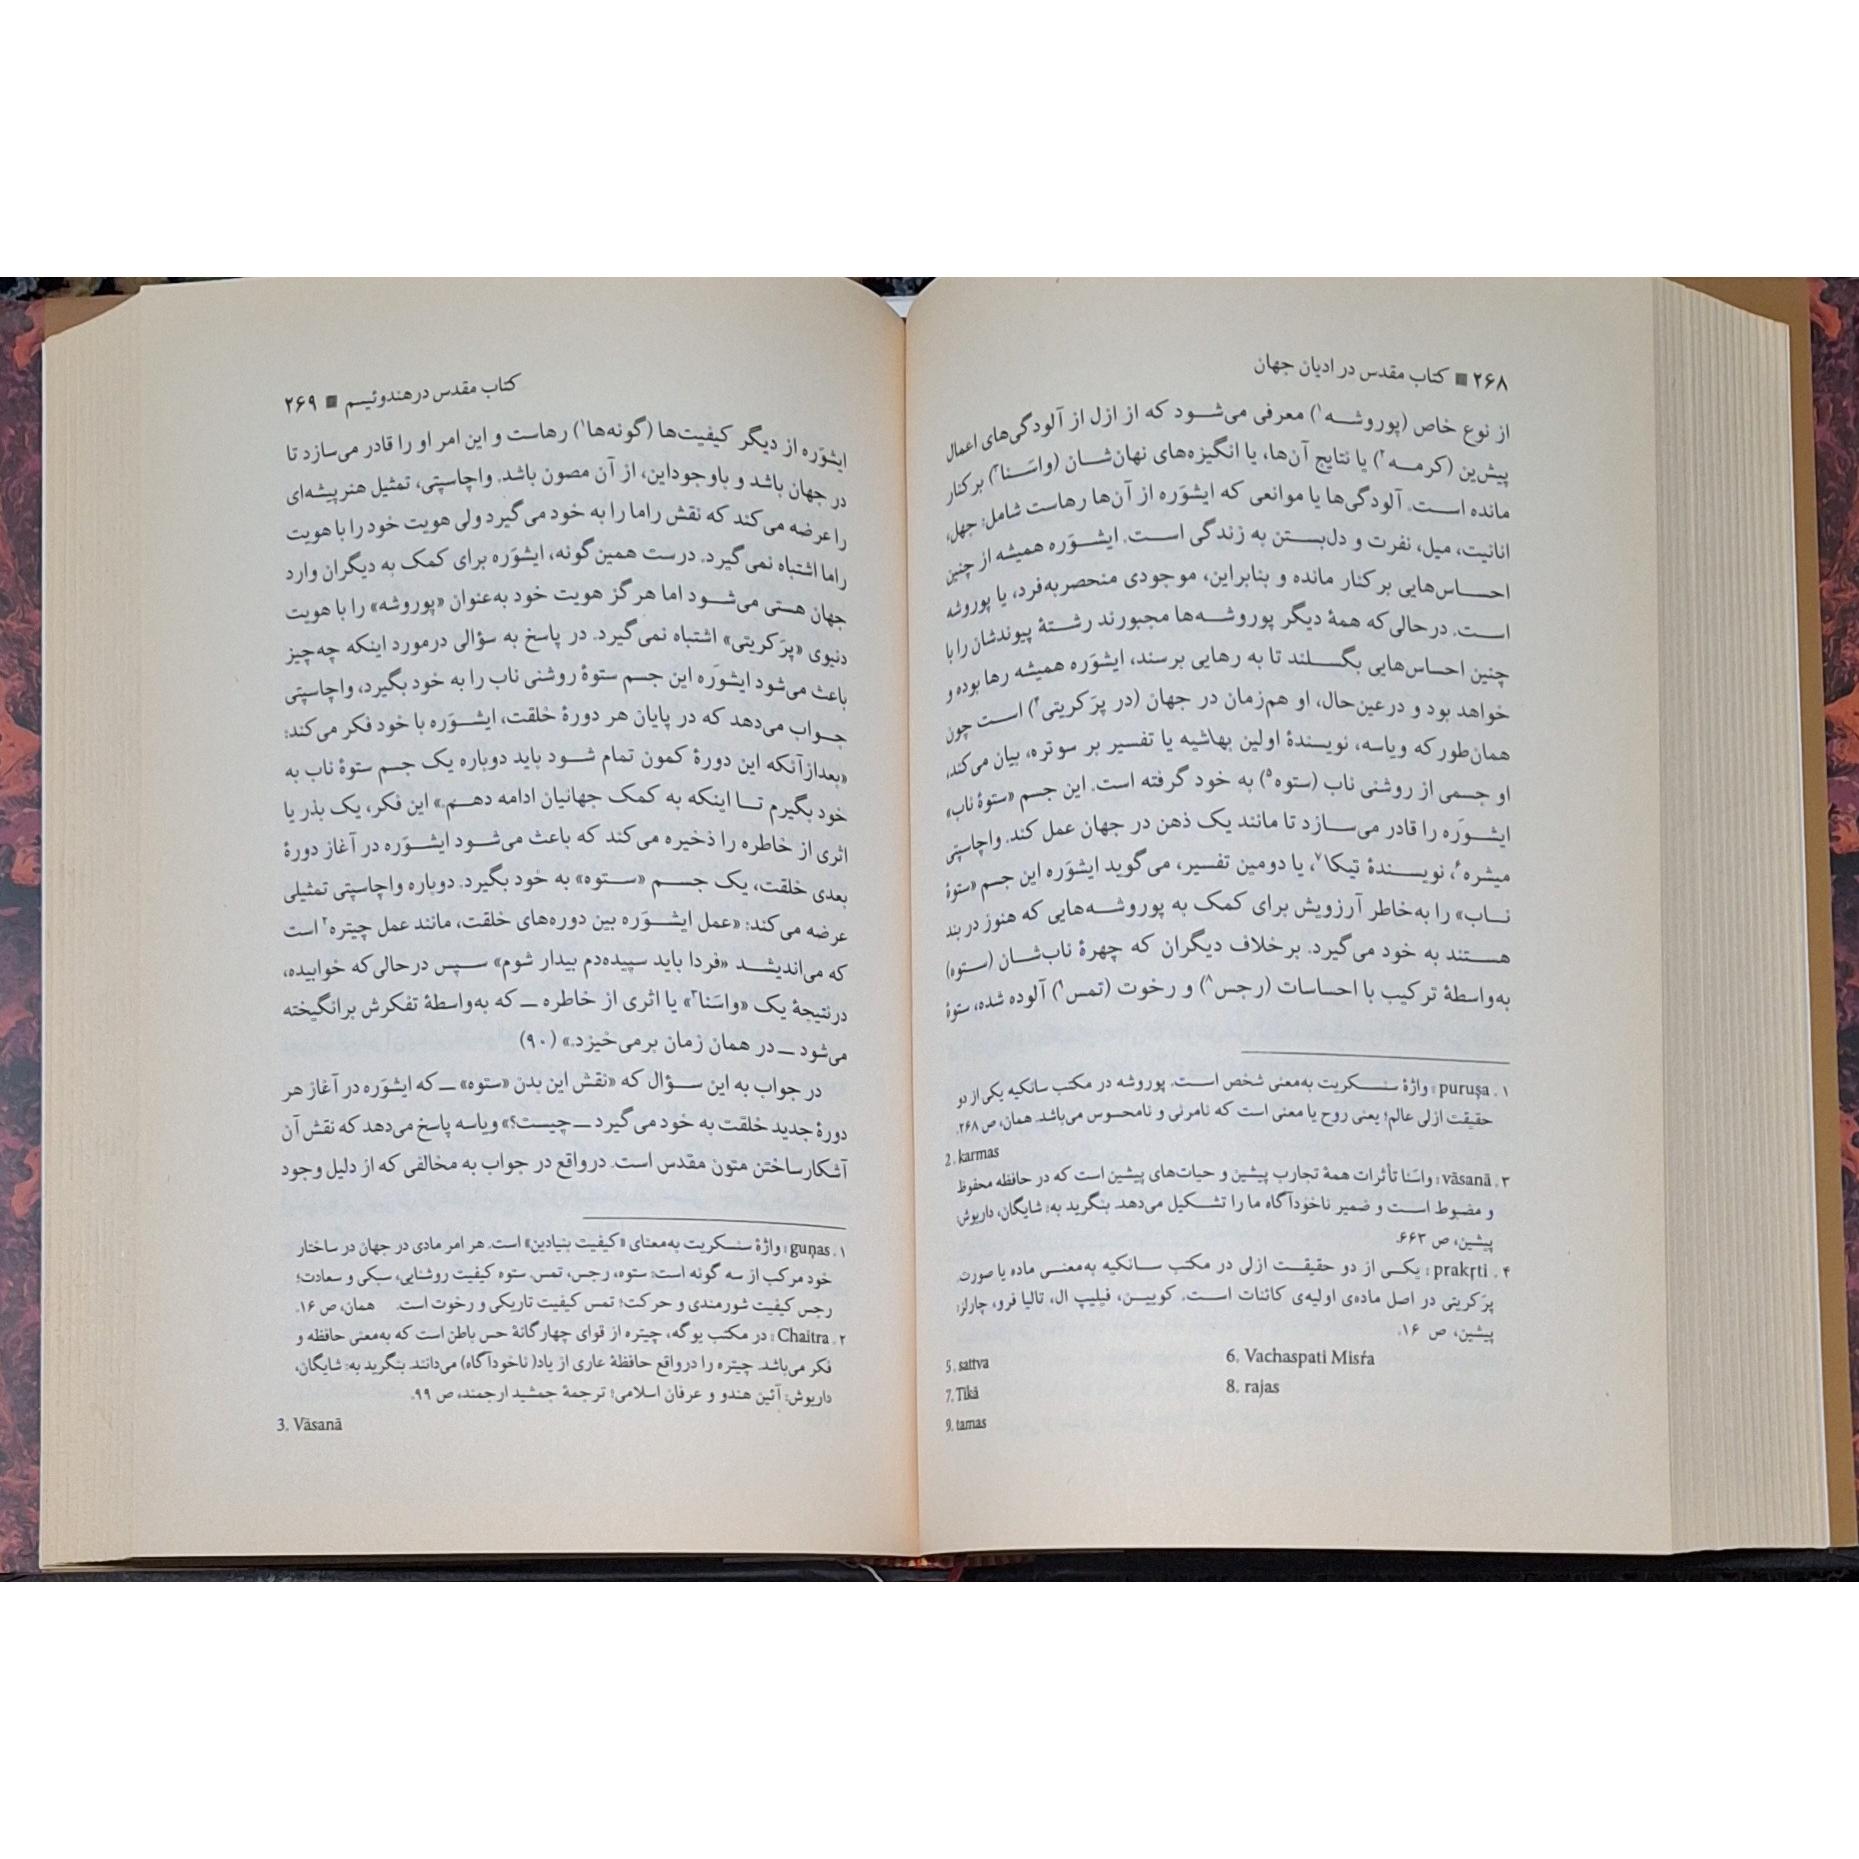 ۲۶۸ ■ کتاب مقدس در ادیان جهان
از نوع خاص (پوروشه۱) معرفی می‌شود که از ازل از آلودگی‌های اعمال
پیش‌ین (کرمه۲) یا نتایج آن‌ها، یا انگیزه‌های نهان‌شان (واسَنا۳) برکنار
مانده است. آلودگی‌ها یا موانعی که ایشوَره از آن‌ها رهاست شامل: جهل،
انانیت، میل، نفرت و دل‌بستن به زندگی است. ایشوَره همیشه از چنین
احساس‌هایی برکنار مانده و بنابراین، موجودی منحصربه‌فرد، یا پوروشه
است. درحالی‌که همهٔ دیگر پوروشه‌ها مجبورند رشتهٔ پیوندشان را با
چنین احساس‌هایی بگسلند تا به رهایی برسند، ایشوَره همیشه رها بوده و
خواهد بود و درعین‌حال، او هم‌زمان در جهان (در پرَکریتی۴) است چون
همان‌طورکه ویاسه، نویسندهٔ اولین بهاشیه یا تفسیر بر سوتره، بیان می‌کند،
او جسمی از روشنی ناب (ستوه۵) به خود گرفته است. این جسم «ستوهٔ ناب»
ایشوَره را قادر می‌سازد تا مانند یک ذهن در جهان عمل کند. واچاسپتی
میشره۶، نویسندهٔ تیکا۷، یا دومین تفسیر، می‌گوید ایشوَره این جسم «ستوهٔ
ناب» را به‌خاطر آرزویش برای کمک به پوروشه‌هایی که هنوز در بند
هستند به خود می‌گیرد. برخلاف دیگران که چهرهٔ ناب‌شان (ستوه)
به‌واسطهٔ ترکیب با احساسات (رجس۸) و رخوت (تمس۹) آلوده شده، ستوهٔ
۱. puruṣa: واژهٔ سنسکریت به‌معنی شخص است. پوروشه در مکتب سانکیه یکی از دو
حقیقت ازلی عالم؛ یعنی روح یا معنی است که نامرئی و نامحسوس می‌باشد. همان، ص ۲۶۸.
2. karmas
۳. vāsanā: واسَنا تأثرات همهٔ تجارب پیشین و حیات‌های پیشین است که در حافظه محفوظ
و مضبوط است و ضمیر ناخودآگاه ما را تشکیل می‌دهد. بنگرید به: شایگان، داریوش:
پیشین، ص ۶۶۳.
۴. prakṛti: یکی از دو حقیقت ازلی در مکتب سانکیه به‌معنی ماده یا صورت.
پرَکریتی در اصل ماده‌ی اولیه‌ی کائنات است. کویین، فیلیپ ال، تالیا فرو، چارلز:
پیشین، ص ۱۶.
5. sattva 6. Vachaspati Misŕa
7. Tīkā 8. rajas
9. tamas
کتاب مقدس در هندوئیسم ■ ۲۶۹
ایشوَره از دیگر کیفیت‌ها (گونه‌ها۱) رهاست و این امر او را قادر می‌سازد تا
در جهان باشد و باوجوداین، از آن مصون باشد. واچاسپتی، تمثیل هنرپیشه‌ای
را عرضه می‌کند که نقش راما را به خود می‌گیرد ولی هویت خود را با هویت
راما اشتباه نمی‌گیرد. درست همین‌گونه، ایشوَره برای کمک به دیگران وارد
جهان هستی می‌شود اما هرگز هویت خود به‌عنوان «پوروشه» را با هویت
دنیوی «پرَکریتی» اشتباه نمی‌گیرد. در پاسخ به سؤالی درمورد اینکه چه‌چیز
باعث می‌شود ایشوَره این جسم ستوهٔ روشنی ناب را به خود بگیرد، واچاسپتی
جواب می‌دهد که در پایان هر دورهٔ خلقت، ایشوَره با خود فکر می‌کند:
«بعدازآنکه این دورهٔ کمون تمام شود باید دوباره یک جسم ستوهٔ ناب به
خود بگیرم تا اینکه به کمک جهانیان ادامه دهم.» این فکر، یک بذر یا
اثری از خاطره را ذخیره می‌کند که باعث می‌شود ایشوَره در آغاز دورهٔ
بعدی خلقت، یک جسم «ستوه» به خود بگیرد. دوباره واچاسپتی تمثیلی
عرضه می‌کند: «عمل ایشوَره بین دوره‌های خلقت، مانند عمل چیتره۲ است
که می‌اندیشد «فردا باید سپیده‌دم بیدار شوم» سپس درحالی‌که خوابیده،
درنتیجهٔ یک «واسَنا۳» یا اثری از خاطره ــ که به‌واسطهٔ تفکرش برانگیخته
می‌شود ــ در همان زمان برمی‌خیزد.» (۹۰)
در جواب به این سؤال که «نقش این بدن «ستوه» ــ که ایشوَره در آغاز هر
دورهٔ جدید خلقت به خود می‌گیرد ــ چیست؟» ویاسه پاسخ می‌دهد که نقش آن
آشکارساختن متون مقدس است. درواقع در جواب به مخالفی که از دلیل وجود
۱. guṇas: واژهٔ سنسکریت به‌معنای «کیفیت بنیادین» است. هر امر مادی در جهان در ساختار
خود مرکب از سه گونه است: ستوه، رجس، تمس. ستوه کیفیت روشنایی، سبکی و سعادت؛
رجس کیفیت شورمندی و حرکت؛ تمس کیفیت تاریکی و رخوت است. همان، ص ۱۶.
۲. Chaitra: در مکتب یوگه، چیتره از قوای چهارگانهٔ حس باطن است که به‌معنی حافظه و
فکر می‌باشد. چیتره را درواقع حافظهٔ عاری از یاد( ناخودآگاه) می‌دانند. بنگرید به: شایگان،
داریوش: آئین هندو و عرفان اسلامی؛ ترجمهٔ جمشید ارجمند، ص ۹۹.
3. Vāsanā